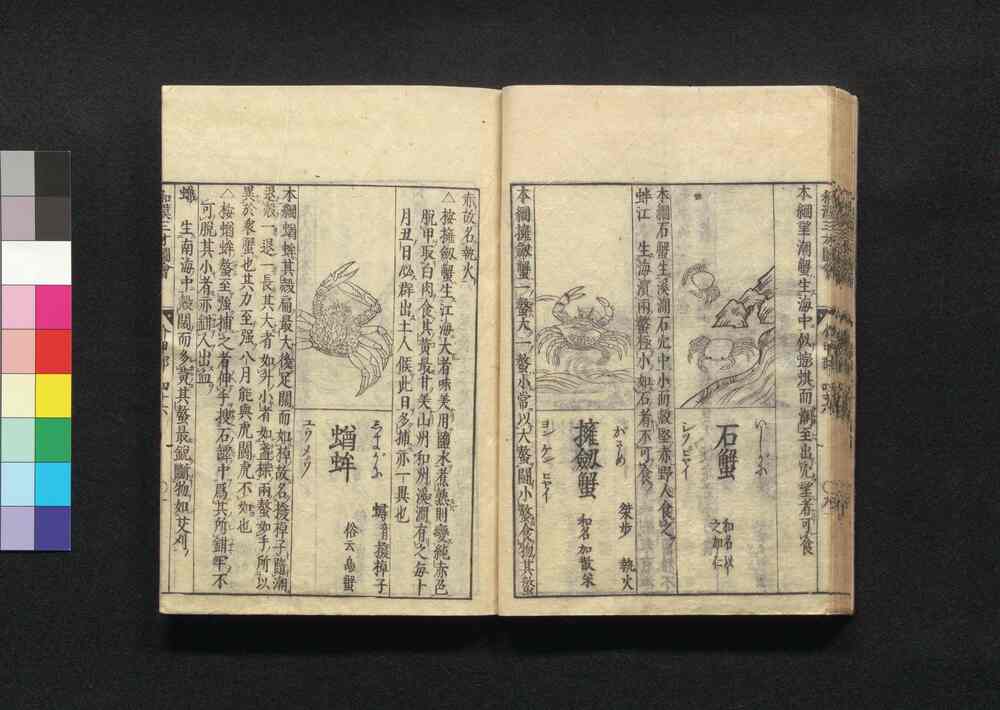 本綱望潮蟹生海中似蟛蜞而潮至出穴望者可食
いしがに
石蟹
和名以之加仁
シツ ヒヤイ
本綱石蟹生溪澗石穴中小而殻堅赤野人食之
蚌江 生海濱兩螯極小如石者不可食
がざめ 桀步 執火
擁劔蟹 和名加散米
ヨン ケン ヒヤイ
本綱擁劔蟹一螯大一螯小常以大螯鬪小螯食物其螯
赤故名執火
△按擁劔蟹生江海大者味美用鹽水煮熟則變純赤色
脫甲取白肉食其黄最甘美山州和州溪澗有之每十
月丑日必群出土人候此日多捕亦一異也
しまがに 蟳音 撥棹子
蝤蛑 俗云島蟹
ユウ メウ
本綱蝤蛑其殻扁最大後足闊而如棹故名撥棹子隨潮
退殻一退一長其大者如升小者如盞楪兩螯如手所以
異於衆蟹也其力至强八月能與虎鬪虎不如也
△按蝤蛑螯至强捕之者伸手搜石罅中爲其所鉗牢不
可脫其小者亦鉗人出血
蟙 生南海中殻闊而多黄其螯最銳斷物如芟刈
和漢三才圖會